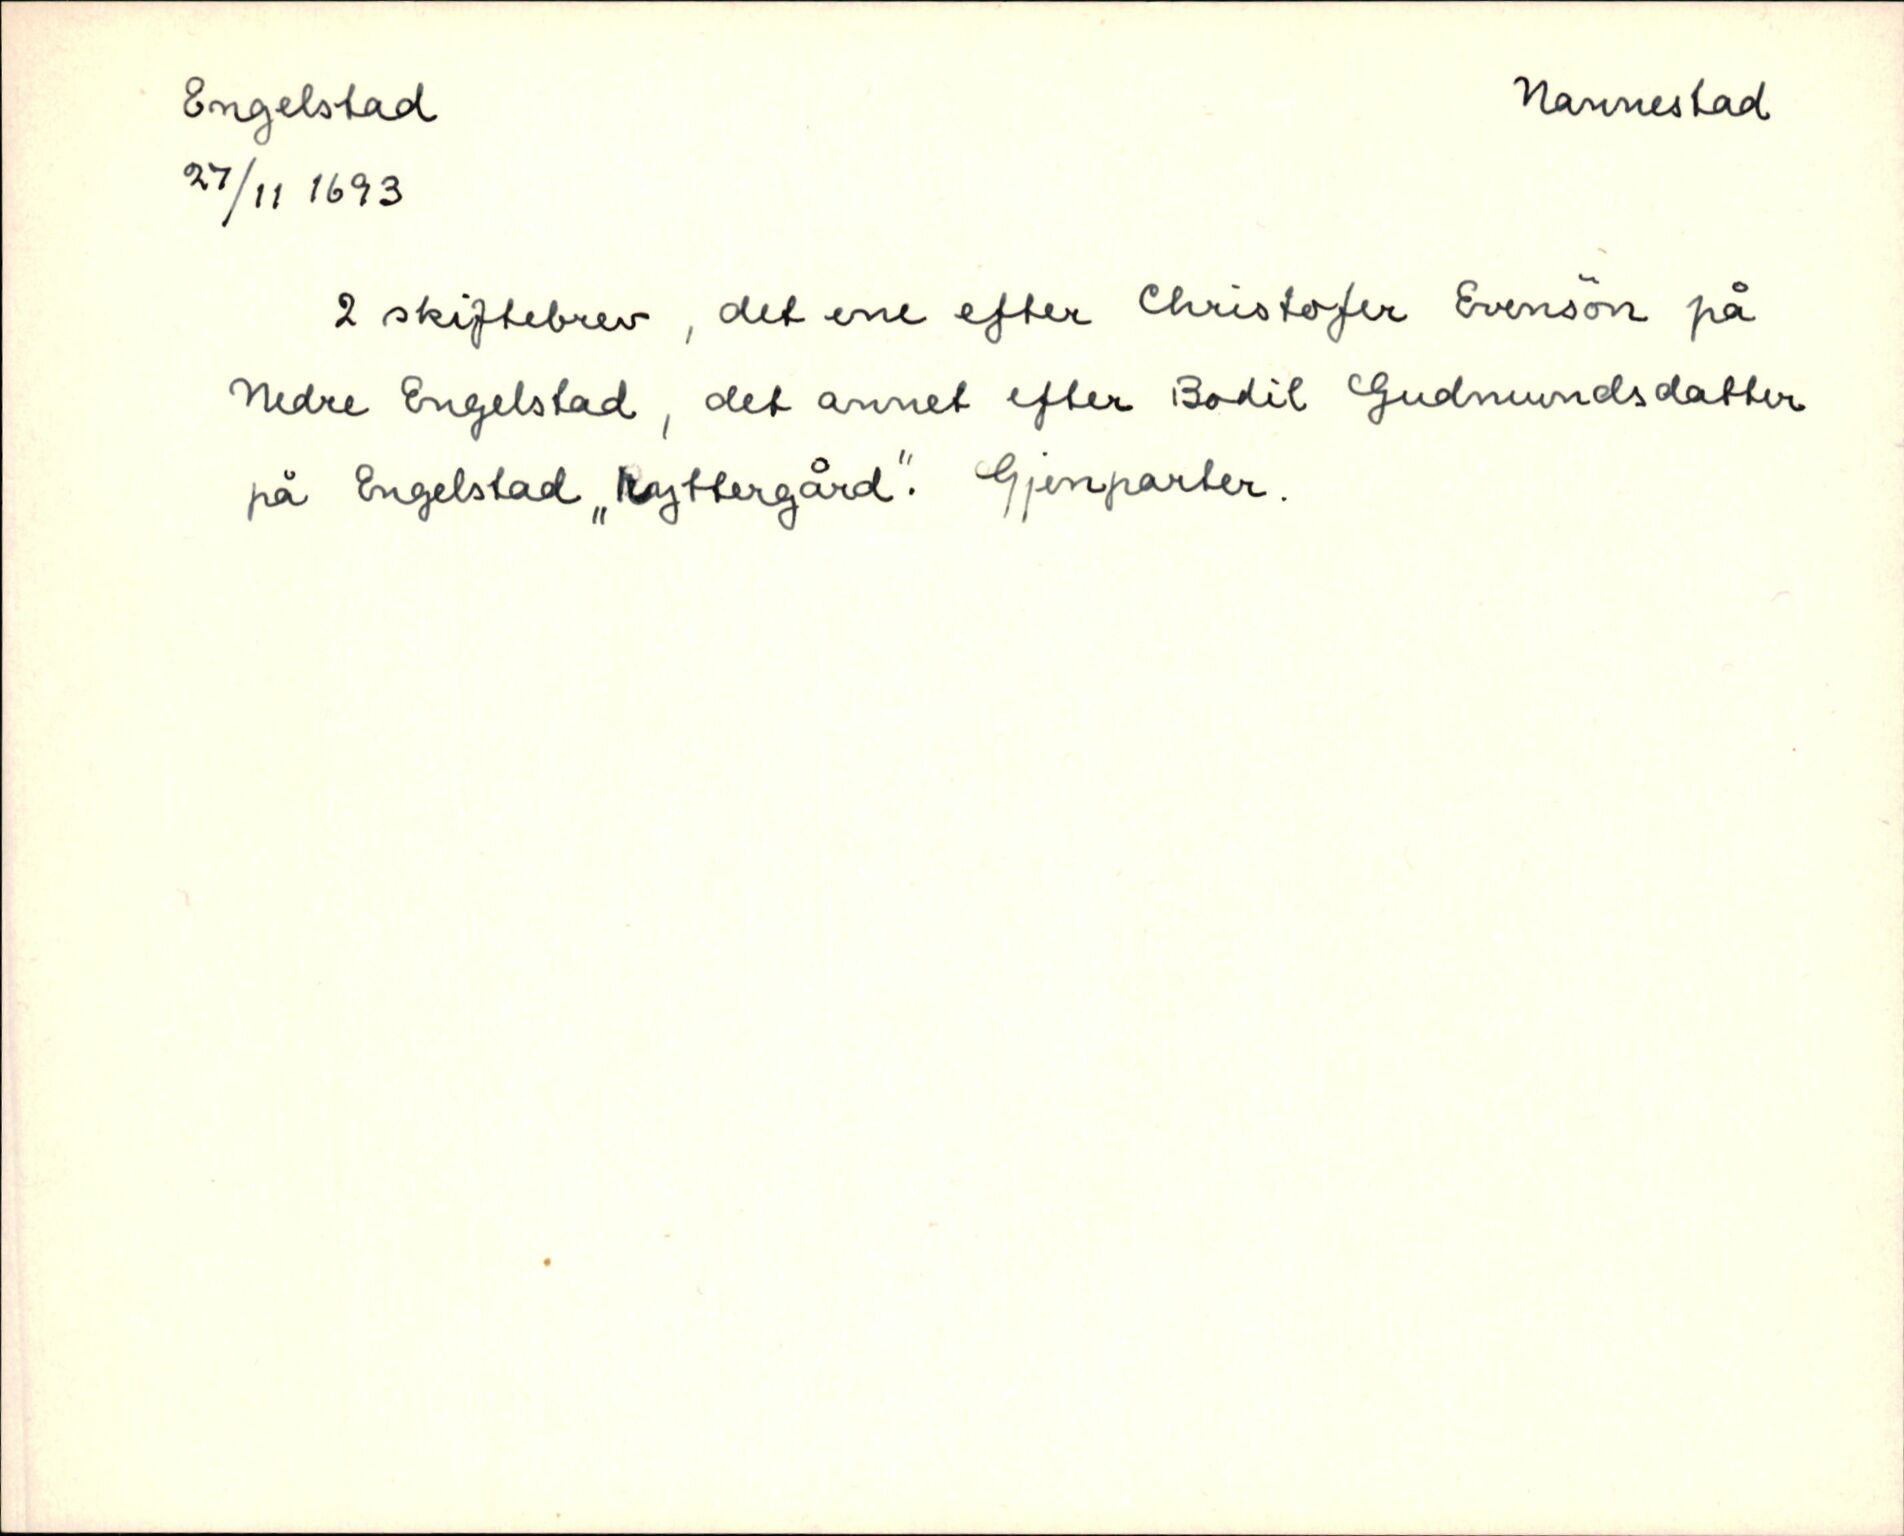 Engelstad Nannestad
27/11 1693
2 skiftebrev, det ene efter Christofer Evensön på
Nedre Engelstad, det annet efter Bodil Gudmundsdatter
på Engelstad „Ryttergård“. Gjenparter.